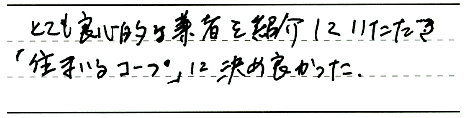 とても良心的な業者を紹介していただき
「住まいるコープ」に決め良かった。